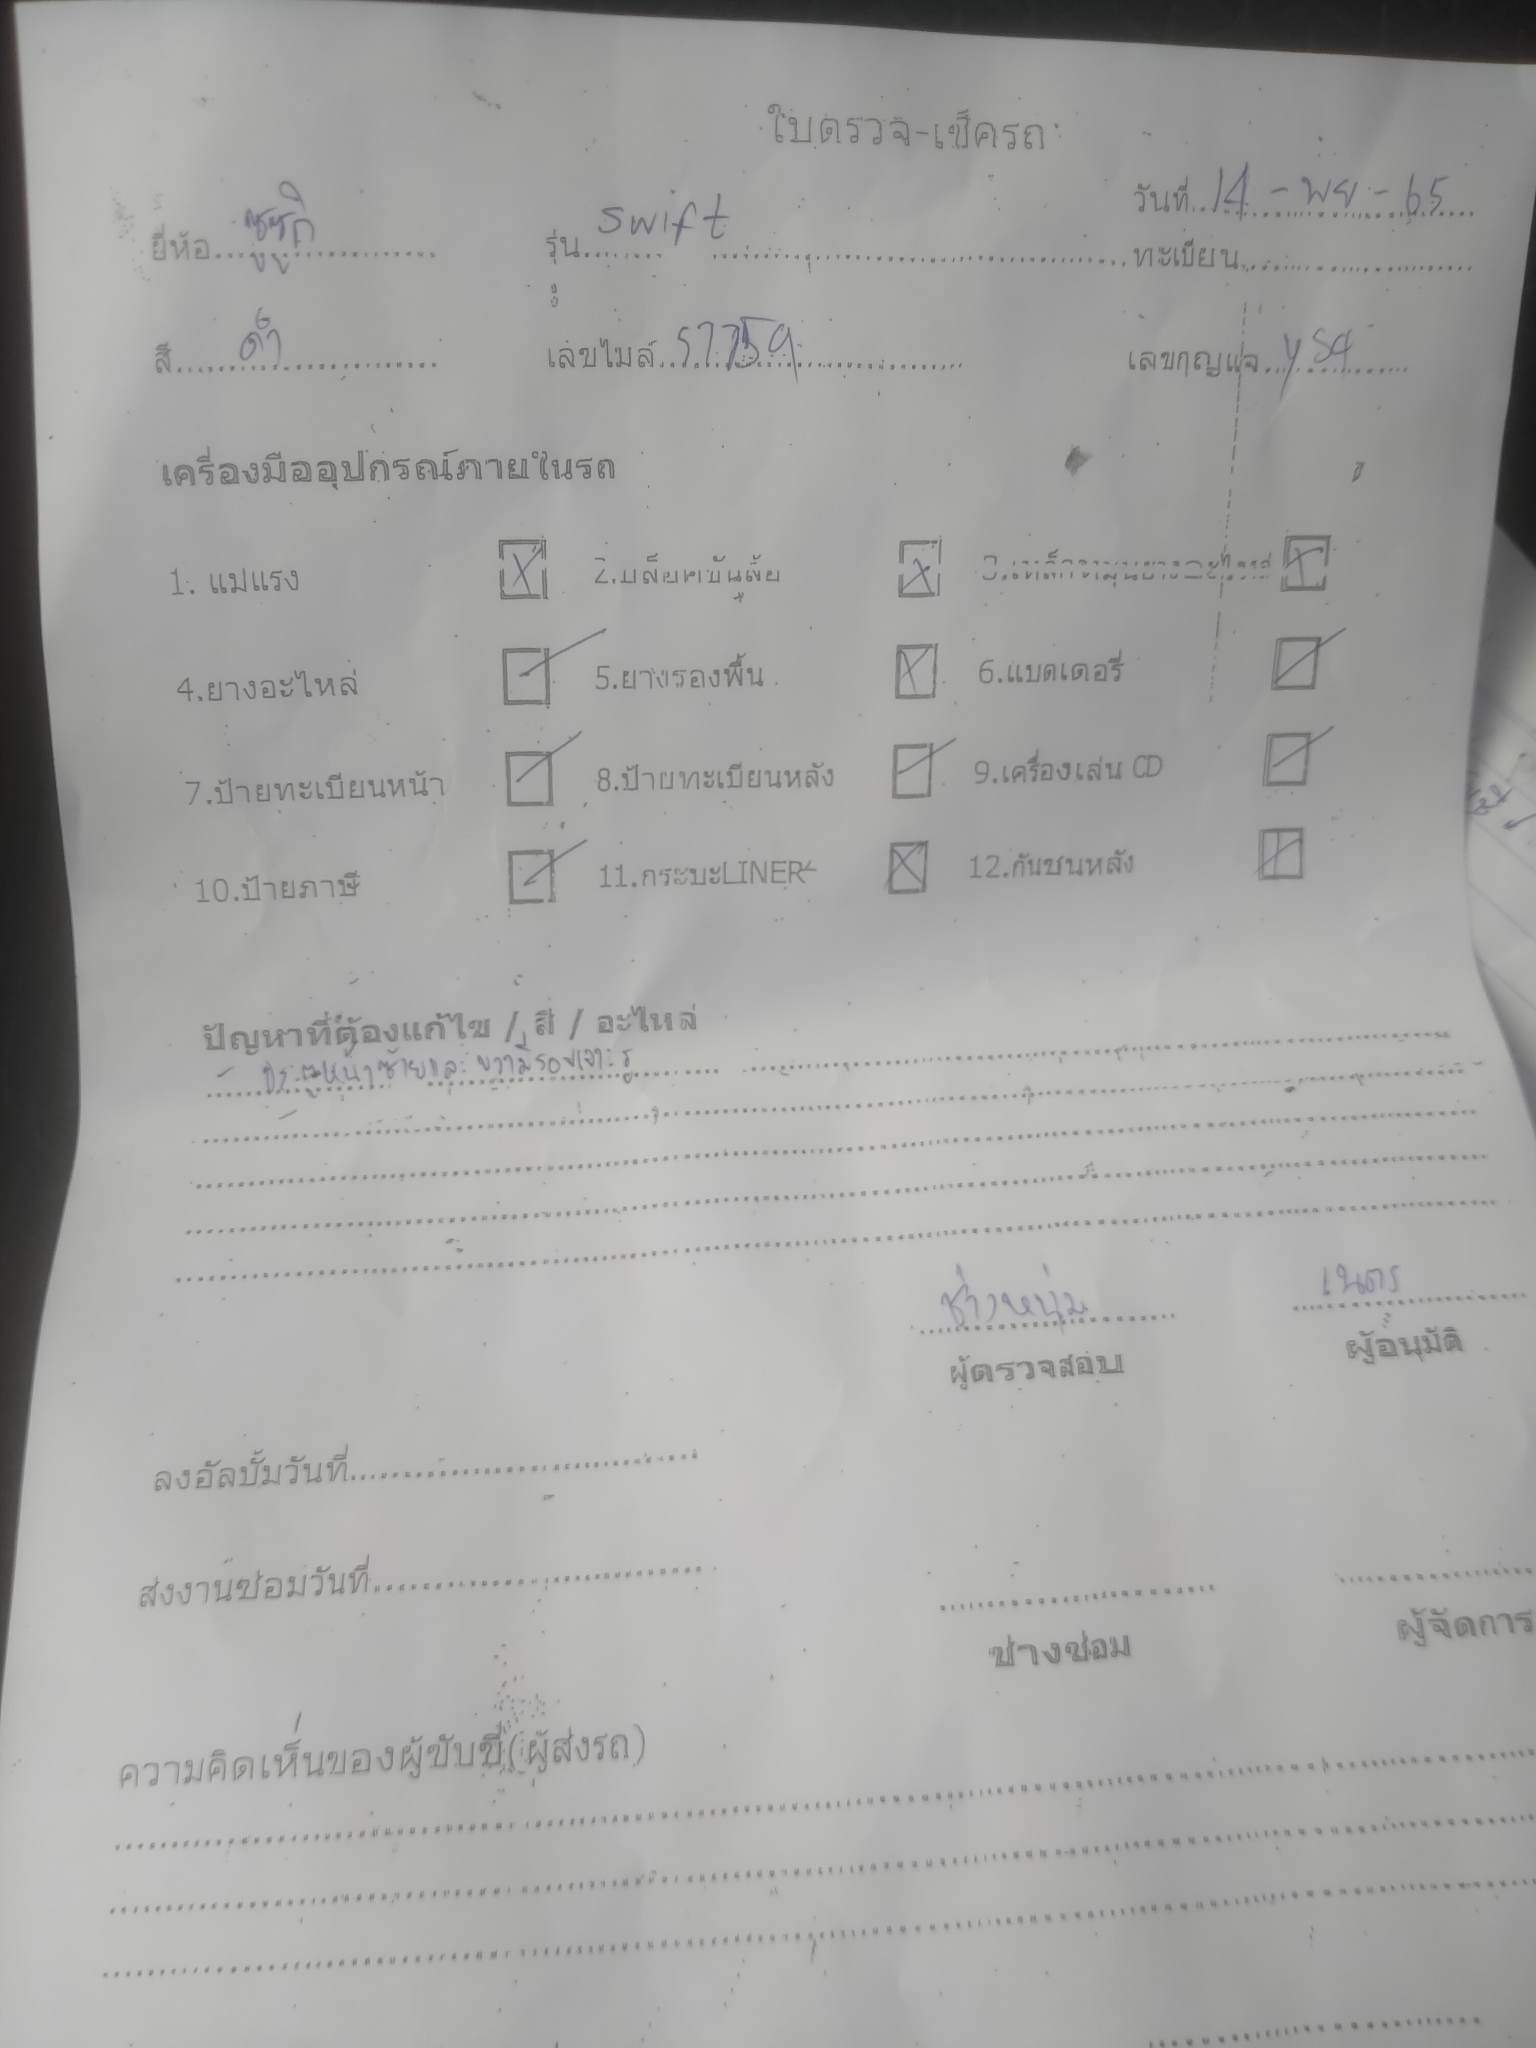 ใบตรวจ-เช็ครถ
วันที่..14 - พย - 65
ยี่ห้อ...ซูซูกิ... รุ่น...swift... ทะเบียน...
สี...ดำ... เลขไมล์...57759... เลขกุญแจ...YS4...
เครื่องมืออุปกรณ์ภายในรถ
1. แม่แรง X 2.บล็อคขันล้อ X 3.
4.ยางอะไหล่ / 5.ยางรองพื้น X 6.แบตเตอรี่ /
7.ป้ายทะเบียนหน้า / 8.ป้ายทะเบียนหลัง / 9.เครื่องเล่น CD /
10.ป้ายภาษี / 11.กระบะLINER X 12.กันชนหลัง
ปัญหาที่ต้องแก้ไข / สี / อะไหล่
- ประตูหน้าซ้ายและขวามีรอยเจาะรู
ช่างหนุ่ม เนตร
ผู้ตรวจสอบ ผู้อนุมัติ
ลงอัลบั้มวันที่...
ส่งงานซ่อมวันที่...
ช่างซ่อม ผู้จัดการ
ความคิดเห็นของผู้ขับขี่(ผู้ส่งรถ)